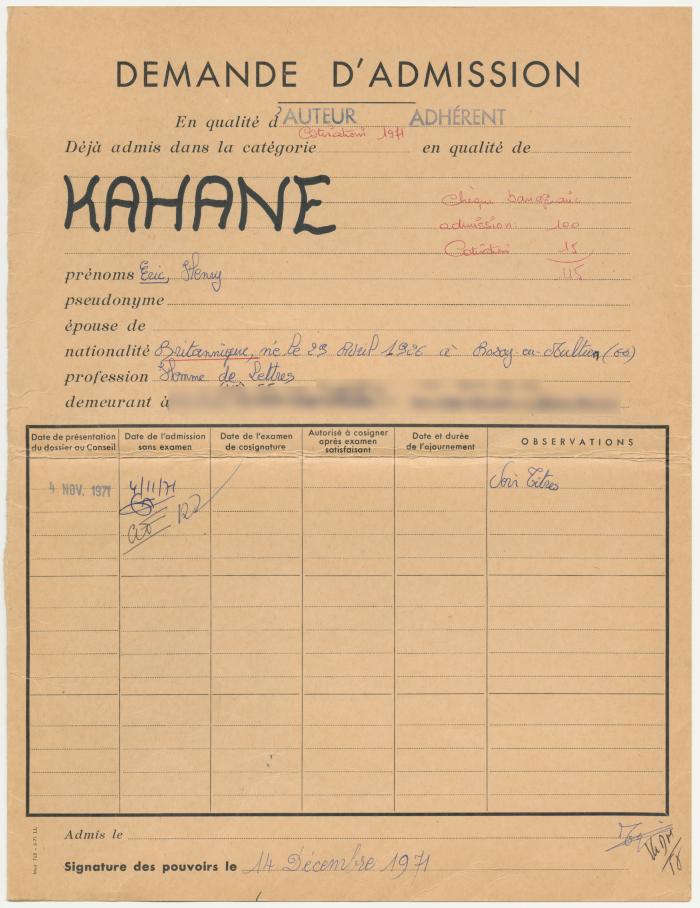 DEMANDE D'ADMISSION
En qualité d'AUTEUR ADHÉRENT
Cotisation 1971
Déjà admis dans la catégorie en qualité de
KAHANE
Chèque bancaire
admission 100
Cotisation 15
115
prénoms Eric, Henry
pseudonyme
épouse de
nationalité Britannique, né le 29 Avril 1926 à Rosoy-en-Multien (60)
profession Homme de Lettres
demeurant à
Date de présentation du dossier au Conseil
Date de l'admission sans examen
Date de l'examen de cosignature
Autorisé à cosigner après examen satisfaisant
Date et durée de l'ajournement
OBSERVATIONS
4 NOV. 1971 4/11/71 Voir Titres
Admis le
Signature des pouvoirs le 14 Décembre 1971